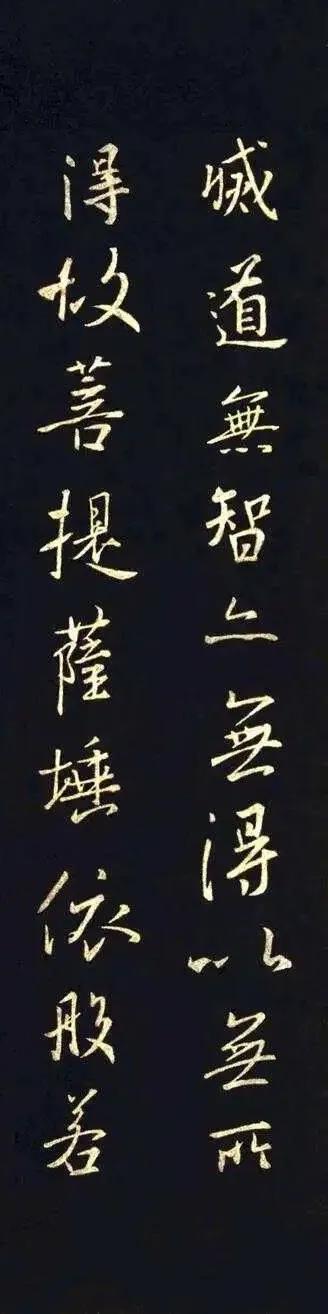 滅道無智亦無得以無所
得故菩提薩埵依般若